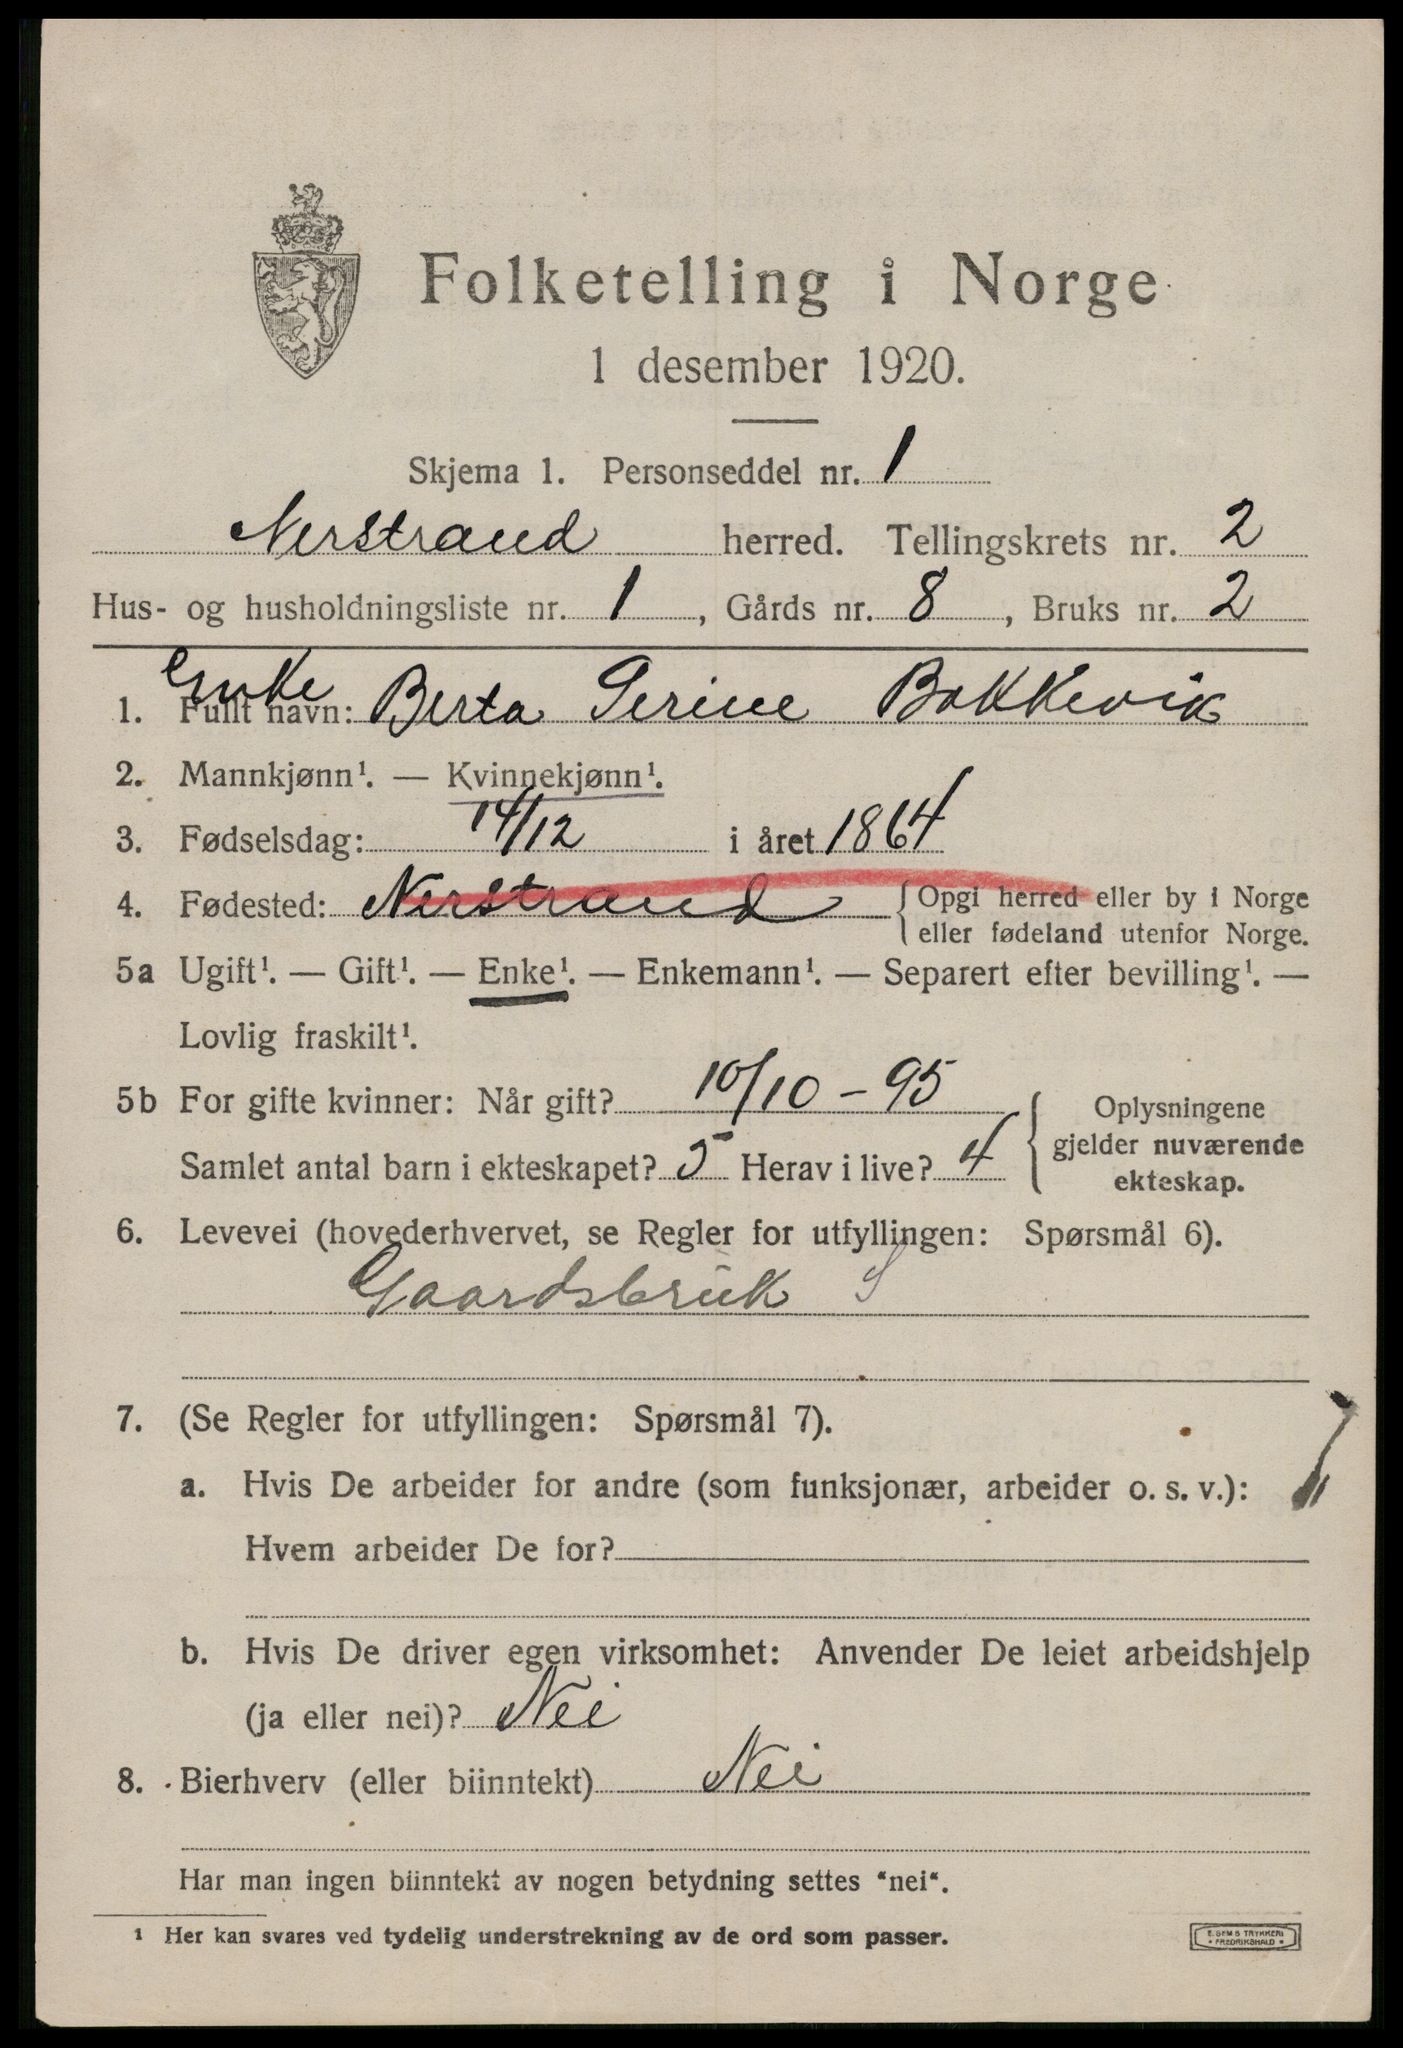 Folketelling i Norge
1 desember 1920.
Skjema 1. Personseddel nr. 1
Nerstrand herred. Tellingskrets nr. 2
Hus- og husholdningsliste nr. 1, Gårds nr. 8, Bruks nr. 2
Enke
1. Fullt navn: Berta Serine Bokkevik
2. Mannkjønn¹. — Kvinnekjønn¹.
3. Fødselsdag: 14/12 i året 1864
4. Fødested: Nerstrand { Opgi herred eller by i Norge
eller fødeland utenfor Norge.
5a Ugift¹. — Gift¹. — Enke¹. — Enkemann¹. — Separert efter bevilling¹. —
Lovlig fraskilt¹.
5b For gifte kvinner: Når gift? 10/10 - 95
Samlet antal barn i ekteskapet? 5 Herav i live? 4
{ Oplysningene
gjelder nuværende
ekteskap.
6. Levevei (hovederhvervet, se Regler for utfyllingen: Spørsmål 6).
Gaardsbruk S
7. (Se Regler for utfyllingen: Spørsmål 7).
a. Hvis De arbeider for andre (som funksjonær, arbeider o. s. v.):
Hvem arbeider De for?
b. Hvis De driver egen virksomhet: Anvender De leiet arbeidshjelp
(ja eller nei)? Nei
8. Bierhverv (eller biinntekt) Nei
Har man ingen biinntekt av nogen betydning settes "nei".
¹ Her kan svares ved tydelig understrekning av de ord som passer.
E. SEMS TRYKKERI
• FREDRIKSHALD •